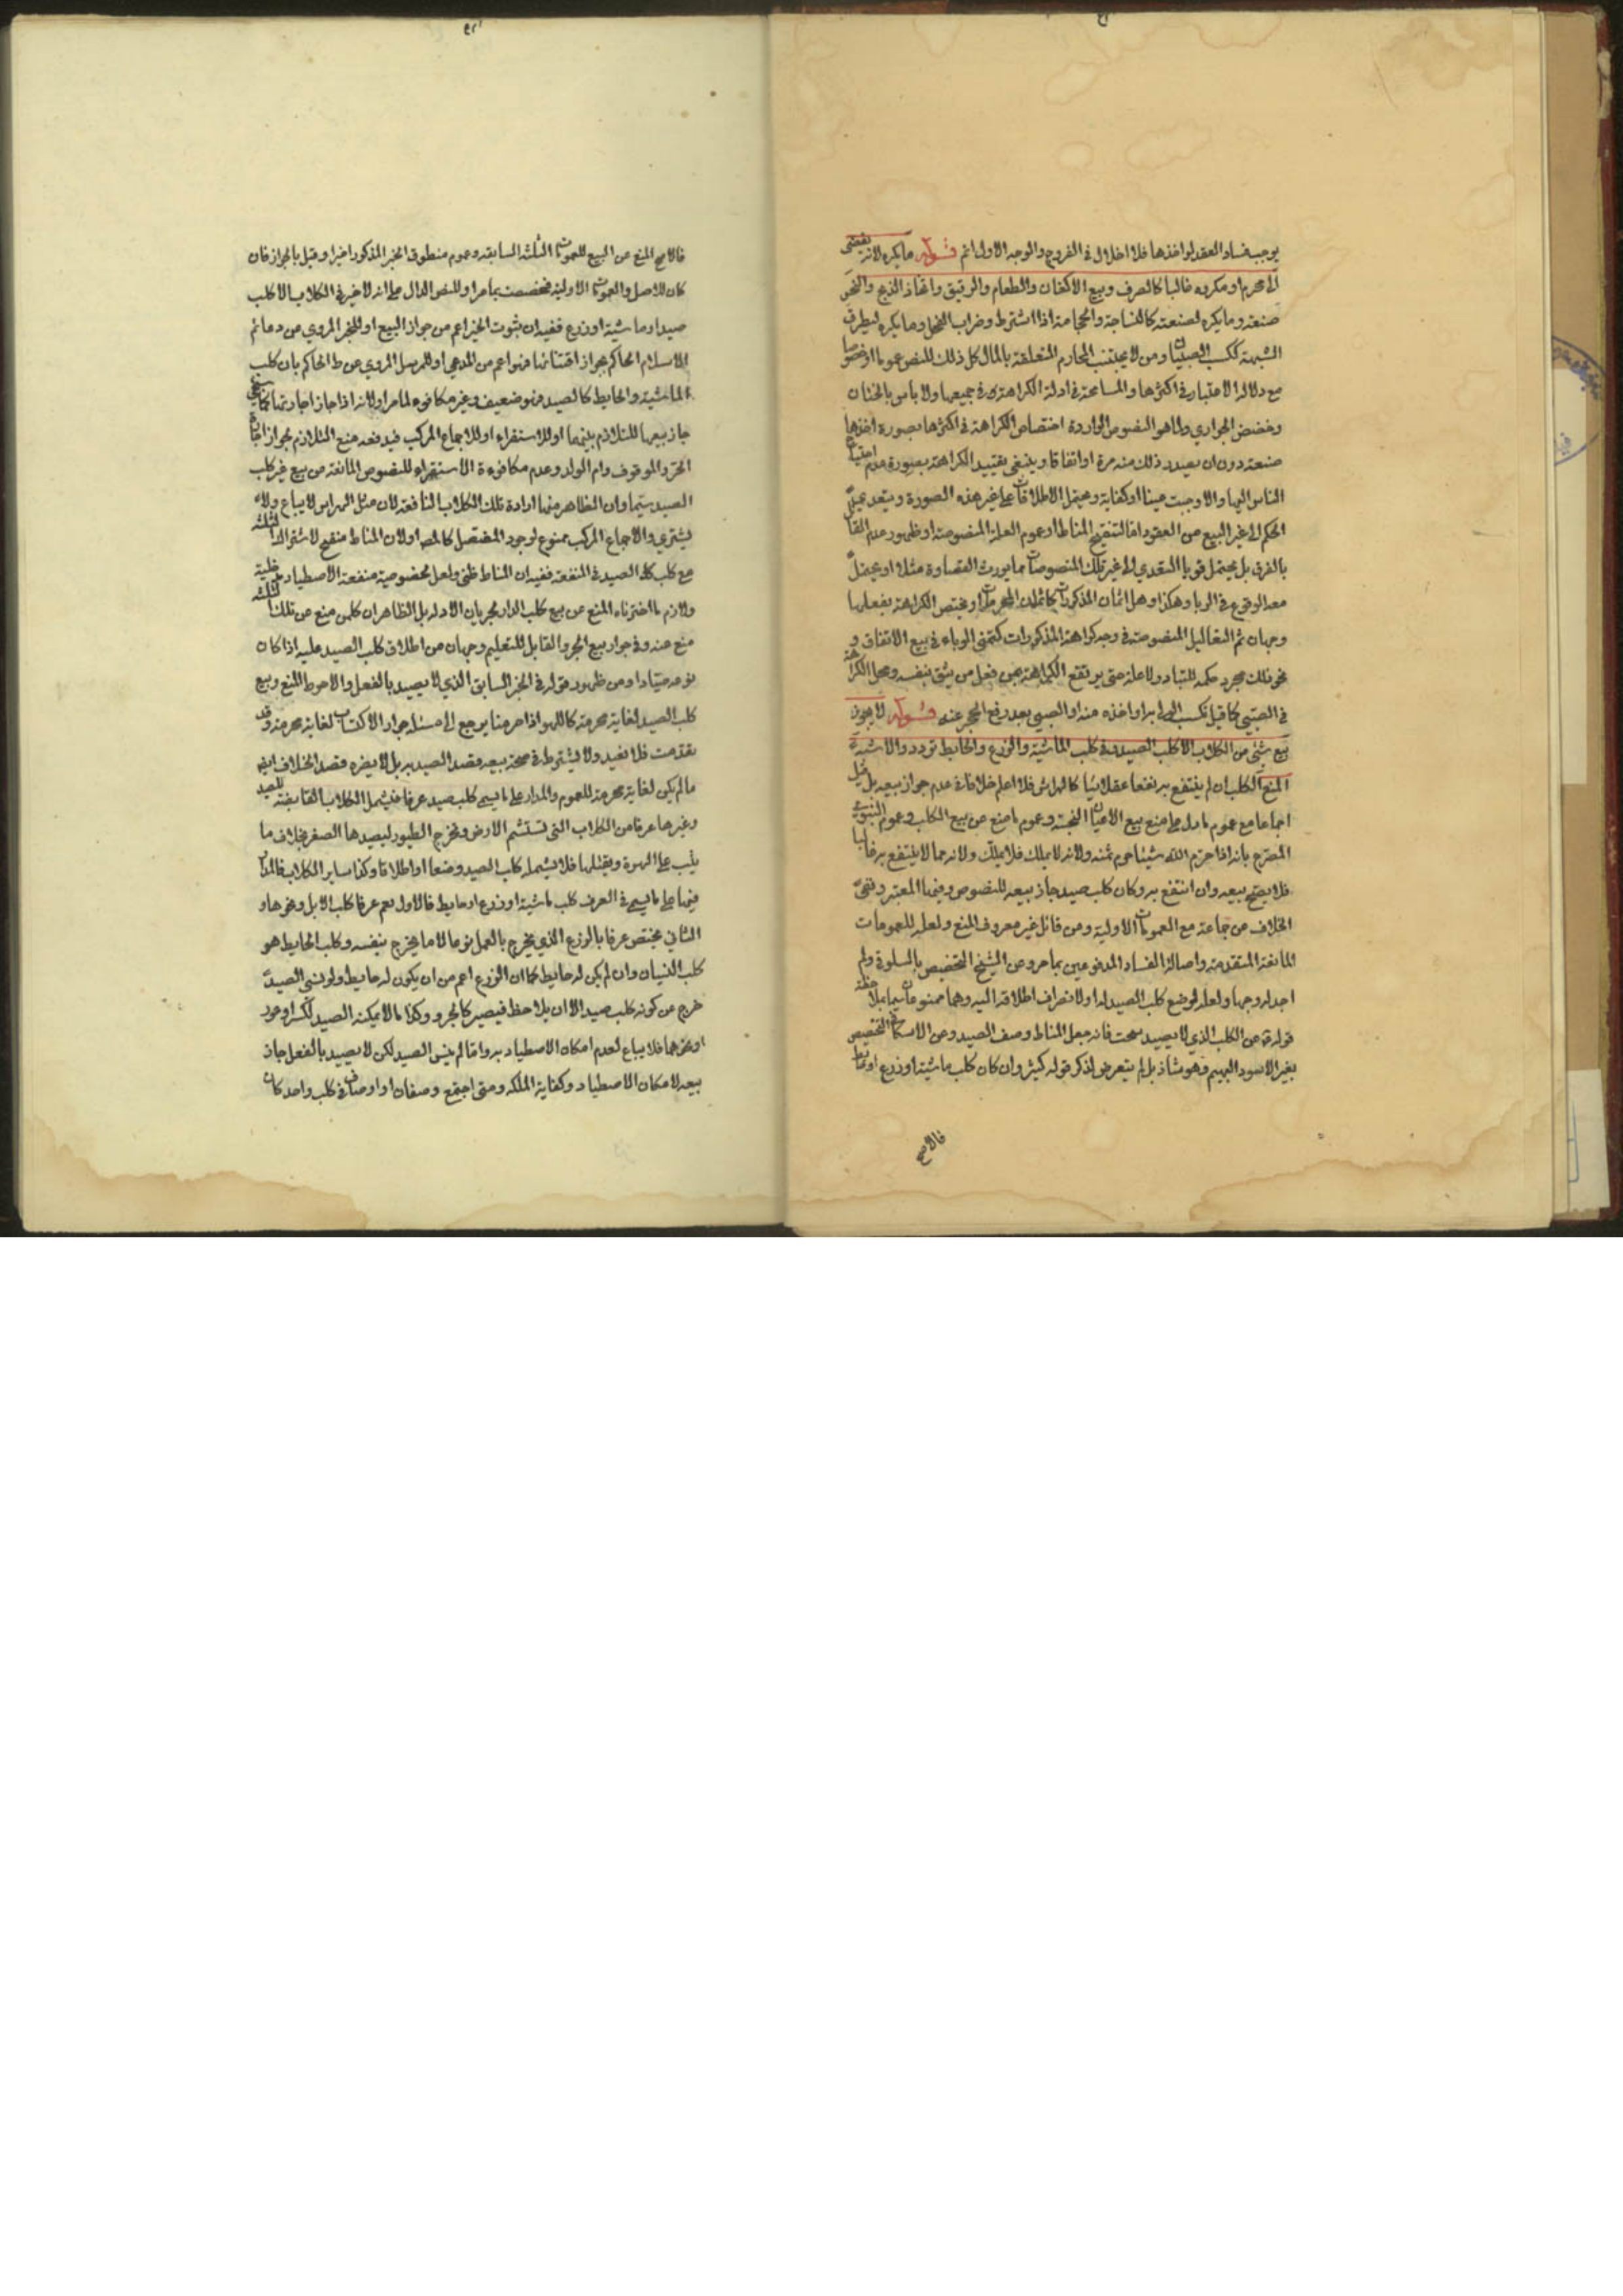 يوجب فساد العقد لو اخذها فلا اخلال في الفروج والوجه الاول اتم قوله ما يكره لانه يفضى
لا محرم او مكروه غالبا كالصرف وبيع الاكفان والطعام والرقيق واتخاذ الذبح والنحر
صنعة وما يكره لصنعته كالنساجة والحجامة اذا اشترط وضراب الفحل وما يكره لتطرق
الشبهة ككسب الصبيان ومن لا يجتنب المحارم المتعلقة بالمال كل ذلك للنص عموما او خصوصا
مع دلالة الاعتبار في اكثرها والمسامحة في ادلة الكراهة في جميعها ولا باس بالختان
وخفض الجواري وظاهر النصوص الواردة اختصاص الكراهة في اكثرها بصورة اخذها
صنعة دون ان يصدر ذلك منه مرة او اتفاقا وينبغي تقييد الكراهة بصورة عدم احتياج
الناس اليها والا وجبت عينا او كفاية ويحتمل الاطلاقات على غير هذه الصورة ويتعدى
الحكم الى غير البيع من العقود اما لتنقيح المناط او عموم العلة المنصوصة او ظهور عدم القائل
بالفرق بل يحتمل قويا التعدي الى غير تلك المنصوصات مما يورث القساوة مثلا او يحتمل
معه الوقوع في الربا وهكذا وهل اثمان المذكورات كاثمان المحرمات او يختص الكراهة بفعلها
وجهان ثم التعاليل المنصوصة في وجه كراهة المذكورات كتمنى الوباء في بيع الاكفان و
نحو ذلك مجرد حكمة للتبادر لا علة حتى يرتفع الكراهة عن فعل من يثق بنفسه ومحل الكراهة
في الصبي كما قيل تكسب الولي به او اخذه منه او الصبي بعد رفع الحجر عنه قوله لا يجوز
بيع شئ من الكلاب الا كلب الصيد وفي كلب الماشية والزرع والحايط تردد والاشبه
المنع الكلب ان لم ينتفع به نفعا عقلائيا كالهراش فلا اعلم خلافا في عدم جواز بيعه بل قيل
اجماعا مع عموم ما دل على منع بيع الاعيان النجسة وعموم ما منع عن بيع الكلب وعموم النبوي
المصرح بانه اذا حرم الله شيئا حرم ثمنه ولانه لا يملك فلا يملك ولانه مما لا ينتفع به غالبا
فلا يصح بيعه وان انتفع به وكان كلب صيد جاز بيعه للنصوص وفيها المعتبر ونفى
الخلاف من جماعة مع العمومات الاولية ومن قائل غير معروف المنع ولعله للعمومات
المانعة المتقدمة واصالة الفساد المدفوعين بما مر وعن الشيخ التخصيص بالسلوقي ولم
اجد له وجها ولعله لوضع كلب الصيد له او لانصراف اطلاقه اليه وهما ممنوعان سيما بملاحظة
قوله ثمن الكلب الذي لا يصيد سحت فانه جعل المناط وصف الصيد وعن الاسكافي التخصيص
بغير الاسود البهيم وهو شاذ بل لم يتعرض لذكر قوله كثير وان كان كلب ماشية او زرع او حايط
فالاصح
فالاصح المنع عن البيع للعمومات الثلثة السابقة وعموم منطوق الخبر المذكور اخيرا وقيل بالجواز فان
كان للاصل والعمومات الاولية فخصصت بما مر او للنص الدال على انه لا خير في الكلاب الا كلب
صيد او ماشية او زرع ففيه ان ثبوت الخير اعم من جواز البيع او للخبر المروي عن دعائم
الاسلام الحاكم بجواز اقتنائها فهو اعم من المدعي او للمرسل المروي عن ط الحاكم بان كلب
الماشية والحايط كالصيد فهو ضعيف وغير مكافوء لما مر او لانه اذا جاز اجارتها
جاز بيعها للتلازم بينهما او للاستقراء او للاجماع المركب فيدفعه منع التلازم لجواز اجارة
الحر والموقوف وام الولد وعدم مكافوءة الاستقراء للنصوص المانعة عن بيع غير كلب
الصيد سيما وان الظاهر منها ارادة تلك الكلاب النافعة لان مثل الهراش لا يباع ولا
يشترى والاجماع المركب ممنوع لوجود المفصل كالمصه او لان المناط منقح لاشتراك الثلثة
مع كلب الصيد في المنفعة ففيه ان المناط ظني ولعل لخصوصية منفعة الاصطياد
ولازم ما اخترناه المنع عن بيع كلب الدار لجريان الادلة بل الظاهر ان كلمن منع عن تلك الثلثة
منع عنه وفي جواز بيع الجرو القابل للتعليم وجهان من اطلاق كلب الصيد عليه اذا كان
نوعه صيادا ومن ظهور قوله في الخبر السابق الذي لا يصيد بالفعل والاحوط المنع وبيع
كلب الصيد لغاية محرمة كاللهو اذا حرمنا يرجع الى مسئلة جواز الاكتساب لغاية محرمة وقد
تقدمت فلا نعيد ولا يشترط في صحة بيعه قصد الصيد به بل لا يضره قصد الخلاف ايضا
ما لم يكن لغاية محرمة للعموم والمدار على ما يسمى كلب صيد عرفا فيشمل الكلاب القابضة للصيد
وغيرها عرفا من الكلاب التي تستشم الارض وتخرج الطيور ليصيدها الصقر بخلاف ما
يثب على الهرة ويقتلها فلا يشمله كلب الصيد وضعا او اطلاقا وكذا ساير الكلاب فالمدار
فيها على ما يسمى في العرف كلب ماشية او زرع او حايط فالاول يعم عرفا كلب الابل ونحوها و
الثاني يختص عرفا بالزرع الذي يخرج بالعمل نوعا لا ما يخرج بنفسه وكلب الحايط هو
كلب البستان وان لم يكن له حايط كما ان الزرع اعم من ان يكون له حايط ولو نسى الصيد
خرج من كونه كلب صيد الا ان يلاحظ فيصير كالجرو وكذا ما لا يمكنه الصيد لكسر او عور
او نحوهما فلا يباع لعدم امكان الاصطياد به واما لم ينس الصيد لكن لا يصيد بالفعل جاز
بيعه لامكان الاصطياد وكفاية الملكه ومتى اجتمع وصفان او اوصاف في كلب واحد كان